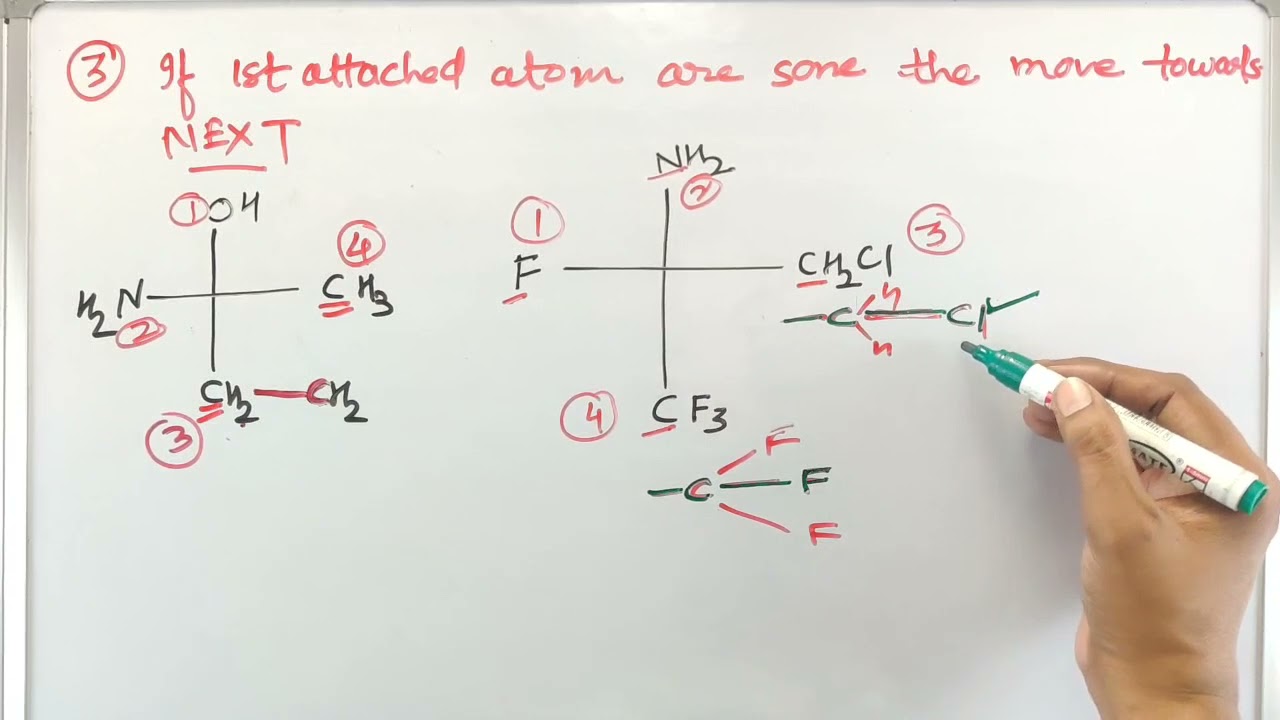 ③ If 1st attached atom are same the move towards
NEXT
① OH
H2N ②
④
CH3
③ CH2 — CH2
NH2
②
①
F
③
CH2Cl
— C — Cl ✓
H
H
④ CF3
— C — F
F
F